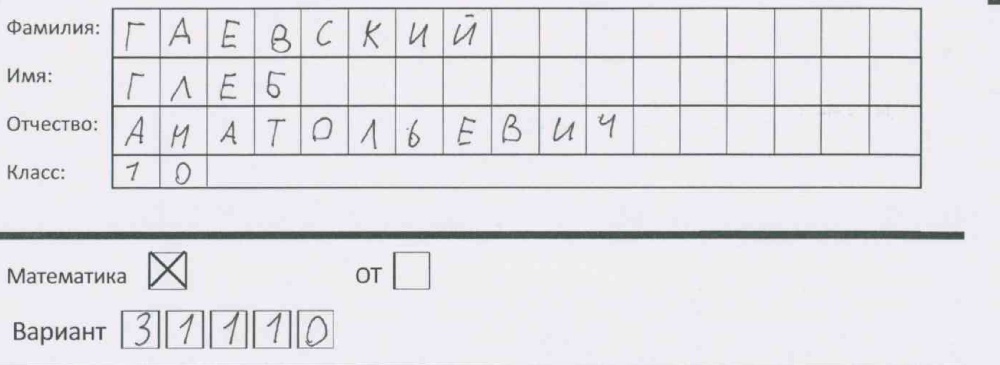 Фамилия: ГАЕВСКИЙ
Имя: ГЛЕБ
Отчество: АНАТОЛЬЕВИЧ
Класс: 10
Математика ☒ ОТ ☐
Вариант 31110